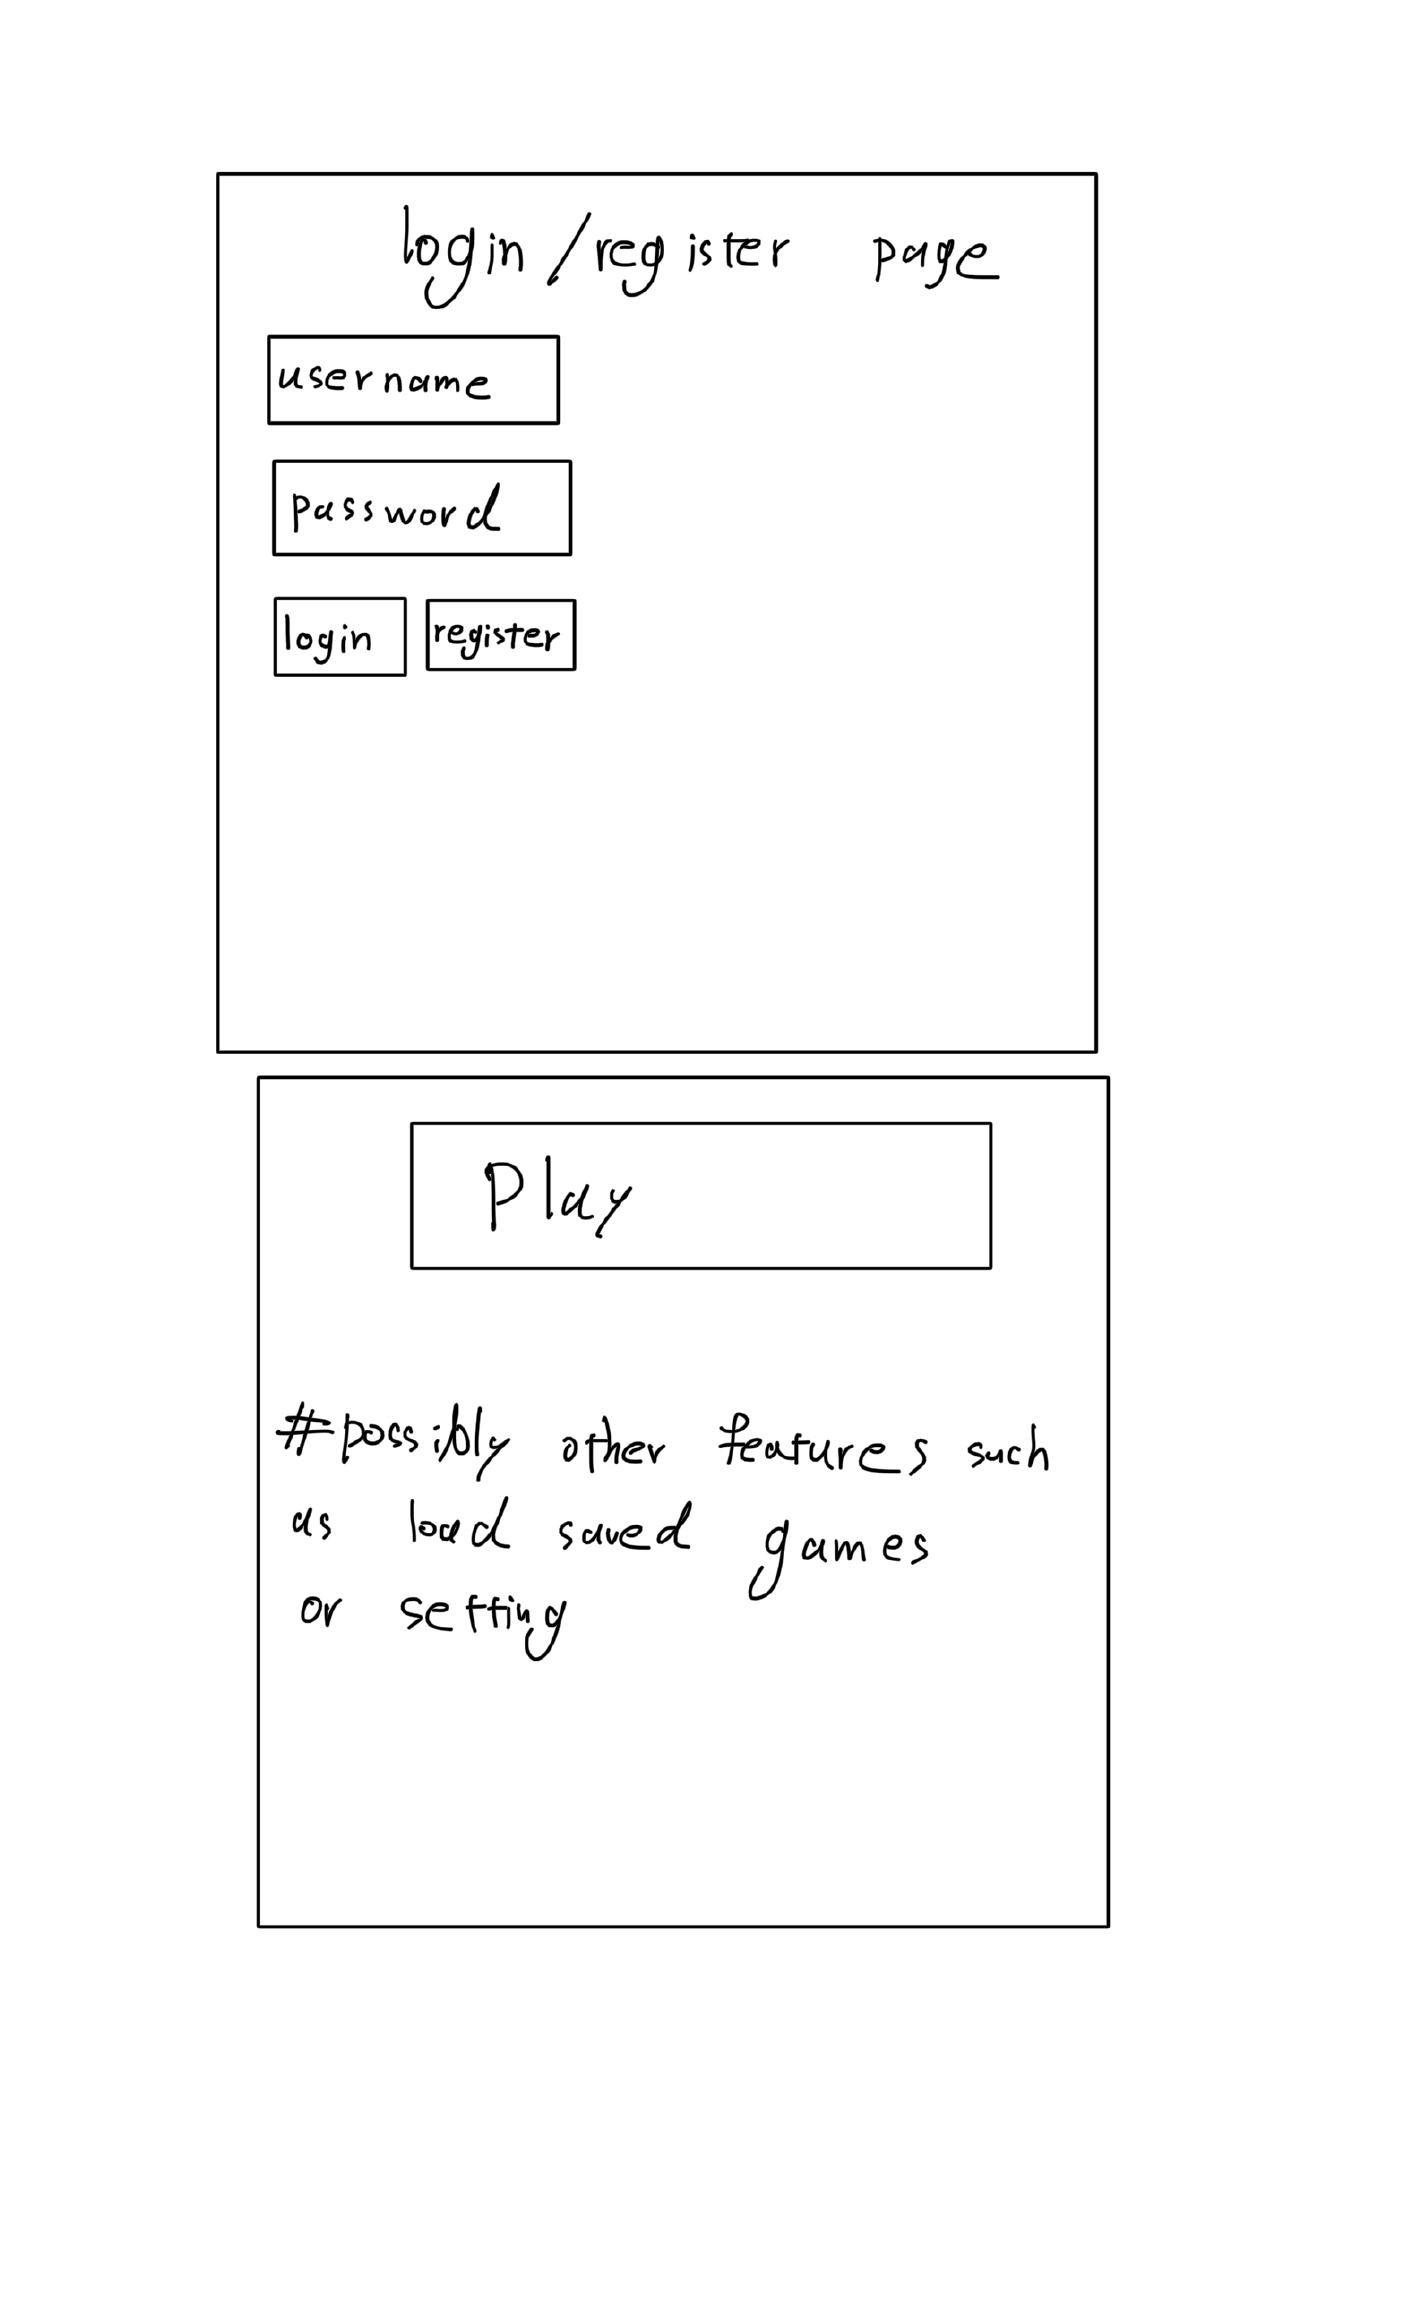 login/register page
username
password
login register
Play
#possibly other features such
as load saved games
or setting